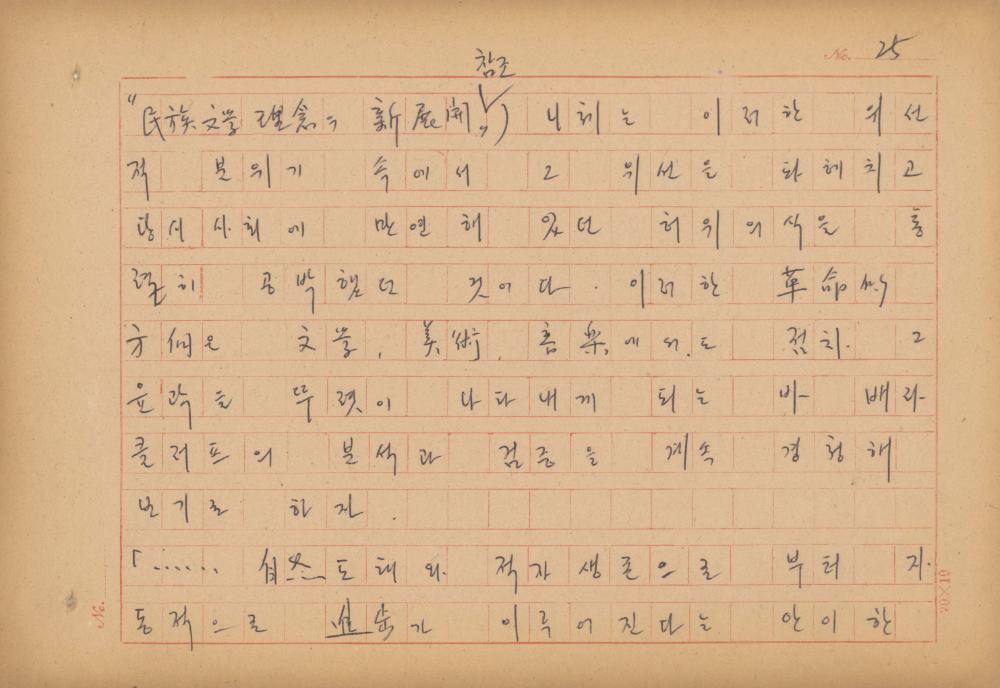 No. 25
참조
"民族文學理念의 新展開") 니체는 이러한 위선
적 분위기 속에서 그 위선을 파헤치고
당시 사회에 만연해 있던 허위의식을 통
렬히 공박했던 것이다. 이러한 革命的
方向은 文學, 美術, 音楽에서도 점치. 그
윤곽을 뚜렷이 나타내게 되는 바 배라
클러프의 분석과 검증을 계속 경청해
보기로 하자.
「...... 自然도태와 적자생존으로부터 자
동적으로 進歩가 이루어진다는 안이한
No.
20×10